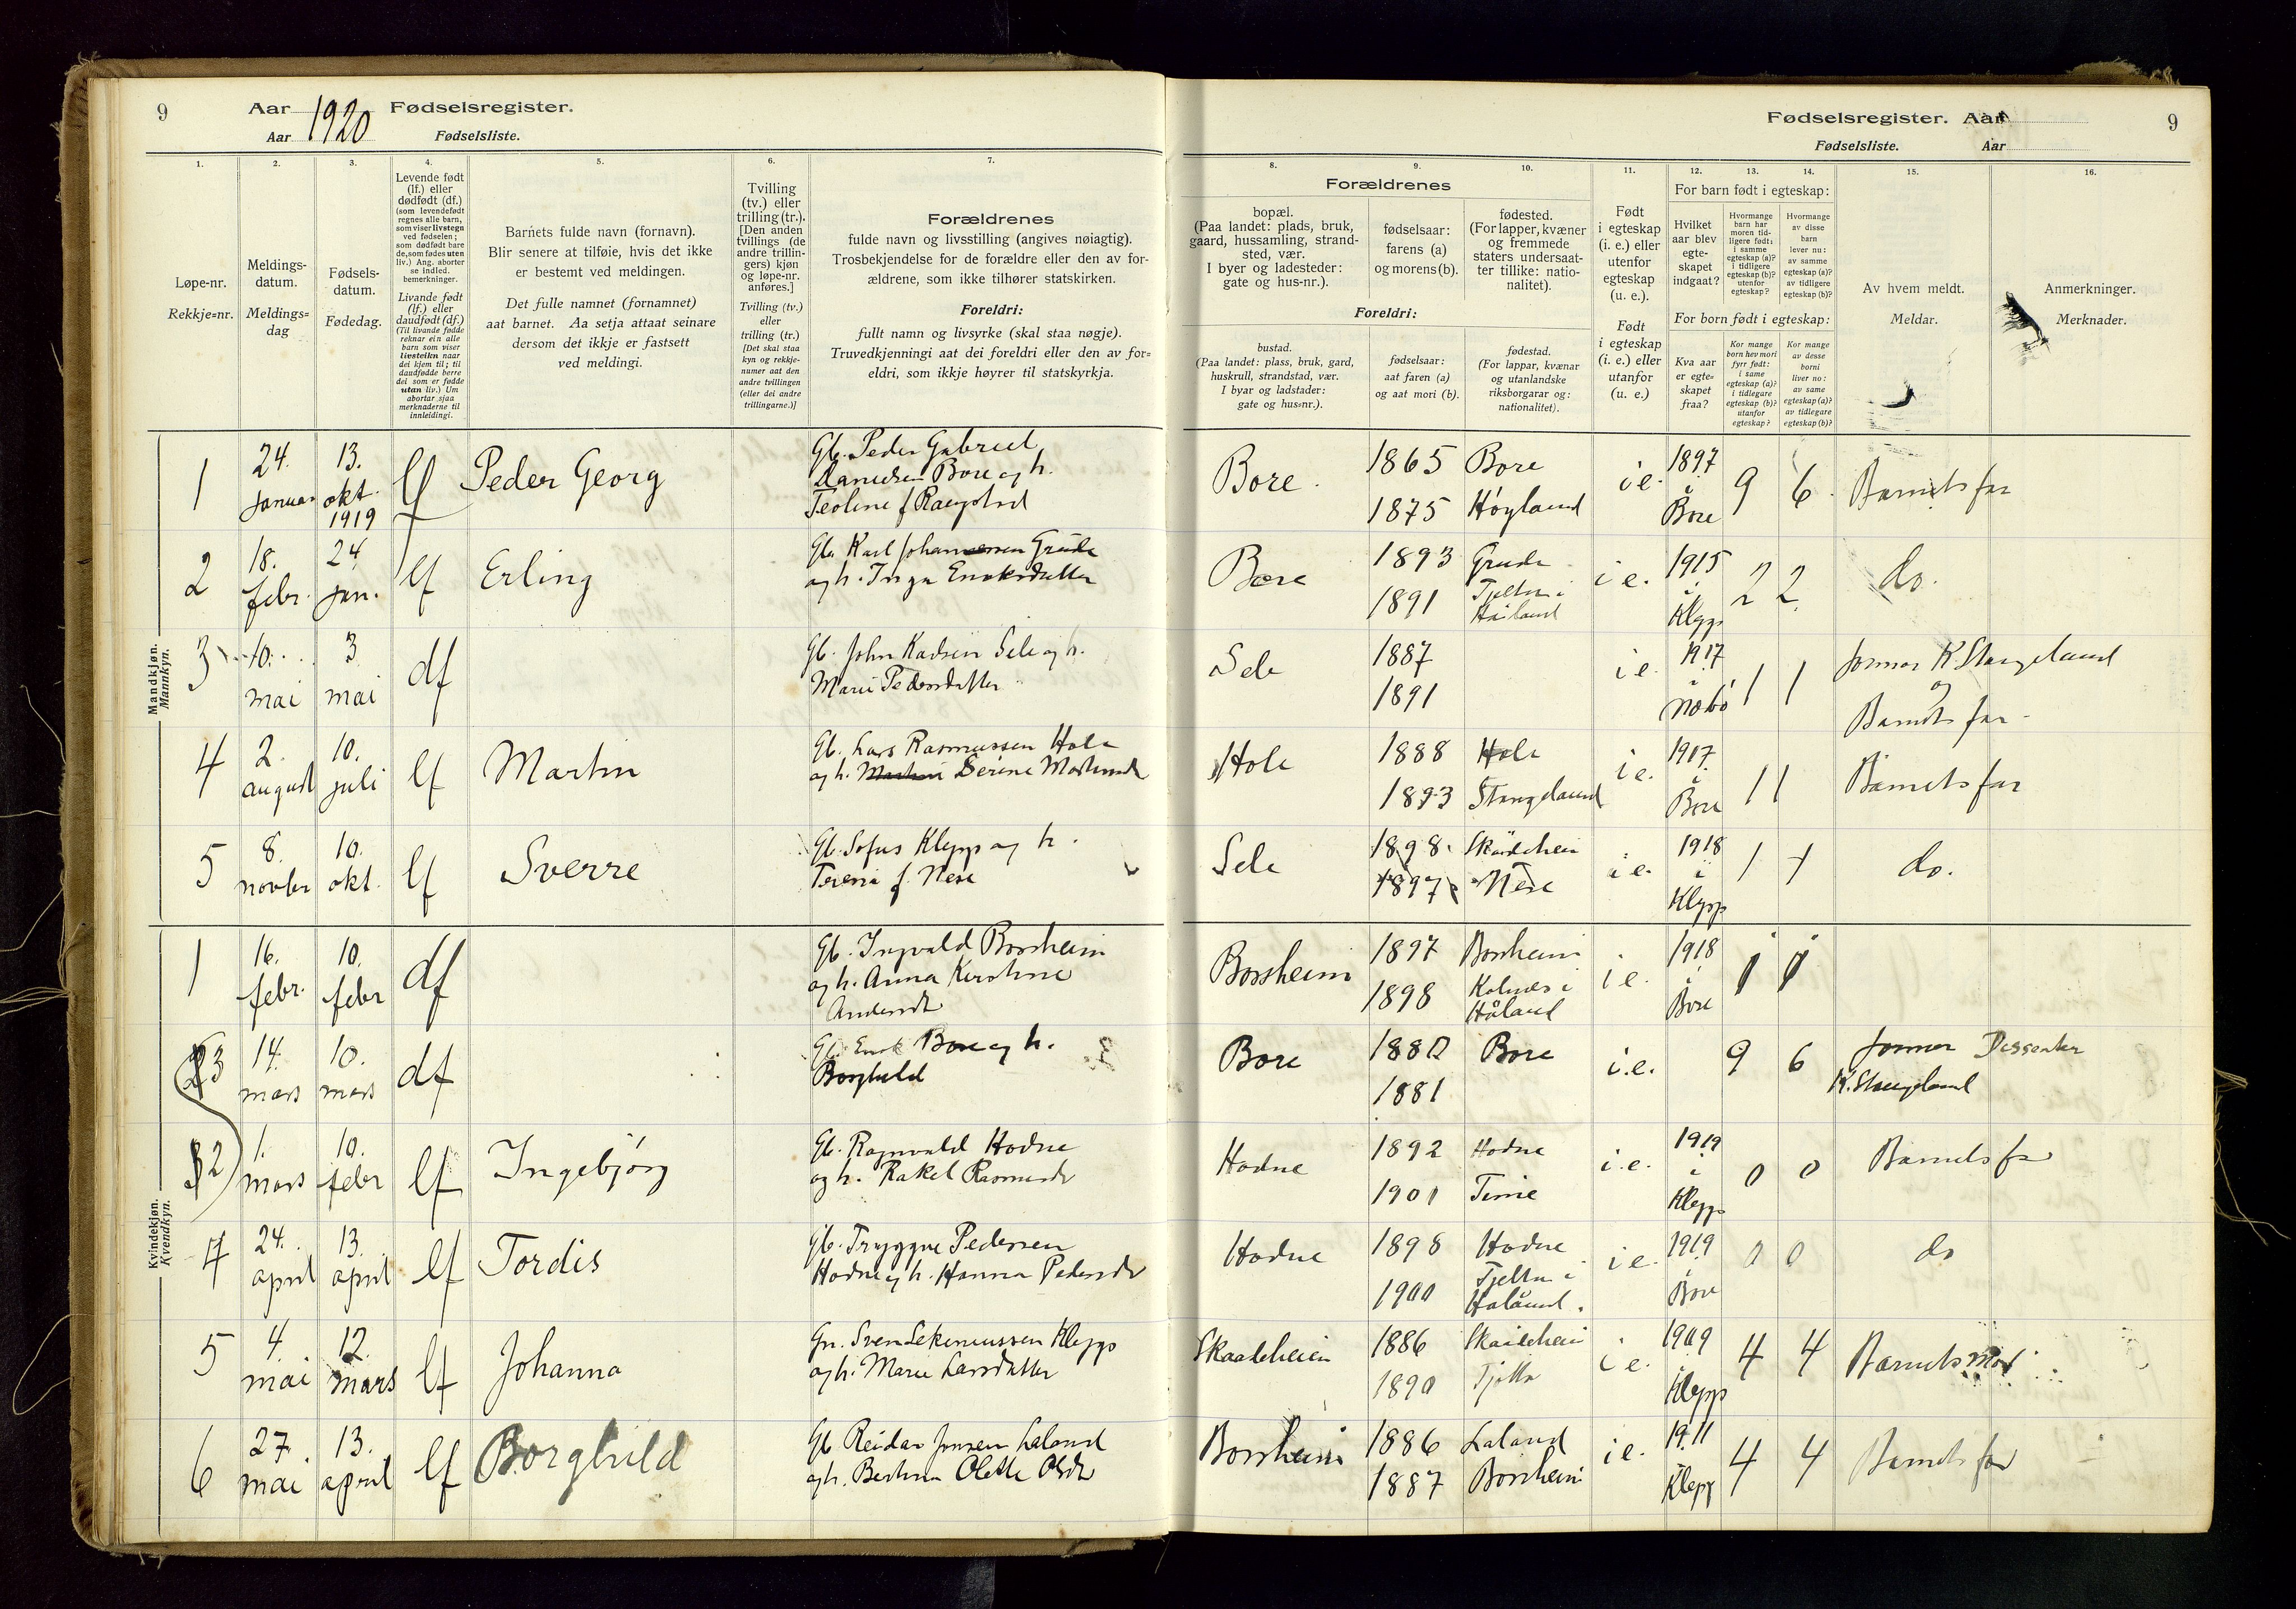 9
Aar 1920 Fødselsregister.
Aar Fødselsliste.
1.
2.
3.
4.
5.
6.
7.
Løpe-nr.
Rekkje=nr.
Meldings-
datum.
Meldings=
dag
Fødsels-
datum.
Fødedag.
Levende født
(lf.) eller
dødfødt (df.)
(som levendefødt
regnes alle barn,
som viser livstegn
ved fødselen;
som dødfødt bare
de, som fødes uten
liv.) Ang. aborter
se indled.
bemerkninger.
Livande født
(lf.) eller
daudfødt (df.)
(Til livande fødde
reknar ein alle
barn som viser
livsteikn naar
dei kjem til; til
daudfødde berre
dei som er fødde
utan liv.) Um
abortar sjaa
merknaderne til
innleidingi.
Barnets fulde navn (fornavn).
Blir senere at tilføie, hvis det ikke
er bestemt ved meldingen.
Det fulle namnet (fornamnet)
aat barnet. Aa setja attaat seinare
dersom det ikkje er fastsett
ved meldingi.
Tvilling
(tv.) eller
trilling (tr.).
[Den anden
tvillings (de
andre trillin-
gers) kjøn
og løpe-nr.
anføres.]
Tvilling (tv.)
eller
trilling (tr.)
[Det skal staa
kyn og rekkje-
numer aat den
andre tvillingen
(eller dei andre
trillingarne.)]
Forældrenes
fulde navn og livsstilling (angives nøiagtig).
Trosbekjendelse for de forældre eller den av for-
ældrene, som ikke tilhører statskirken.
Foreldri:
fullt namn og livsyrke (skal staa nøgje).
Truvedkjenningi aat dei foreldri eller den av for=
eldri, som ikkje høyrer til statskyrkja.
Mandkjøn.
Mannkyn.
1 24. januar 13. okt. 1919 lf Peder Georg
Gb. Peder Gabriel
Danielsen Bore og h.
Teoline f.
2 18. febr. 24. jan. lf Erling
Gb. Karl Johannessen Grude
og h. Inga Enoksdatter
3 10. mai 3 mai df
Gb. John Sele og h.
Marie Pedersdatter
4 2. august 10. juli lf Martin
Gb. Lars Rasmussen Hole
og h. Serine
5 8. novbr 10. okt. lf Sverre
Gb. Sofus Klepp og h.
f. Nese
Kvindekjøn.
Kvendkyn.
1 16. febr. 10. febr df
Gb. Ingvald Borsheim
og h. Anna Kirstine
3 14. mars 10. mars df
Gb. Enok Bore og h.
Borghild
2 1. mars 10. febr lf Ingebjørg
Gb. Ragnvald Hodne
og h. Rakel Rasmusdt
4 24. april 13. april lf Tordis
Gb. Tryggve Pedersen
Hodne og h. Hanna Pedersdt
5 4 mai 12. mars lf Johanna
Gn. Sven Klepp
og h. Marie Larsdatter
6 27. mai 13. april lf Borghild
Gb Reidar Jonsen Laland
og h. Bertina Olette Olsdt
Fødselsregister. Aar
9
Fødselsliste. Aar
8.
9.
10.
11.
12.
13.
14.
15.
16.
Forældrenes
bopæl.
(Paa landet: plads, bruk,
gaard, hussamling, strand-
sted, vær.
I byer og ladesteder:
gate og hus-nr.).
fødselsaar:
farens (a)
og morens (b).
fødested.
(For lapper, kvæner
og fremmede
staters undersaat-
ter tillike: natio-
nalitet).
Foreldri:
bustad.
(Paa landet: plass, bruk, gard,
huskrull, strandstad, vær.
I byar og ladstader:
gate og hus=nr.).
fødselsaar:
aat faren (a)
og aat mori (b).
fødestad.
(For lappar, kvænar
og utanlandske
riksborgarar og:
nationalitet).
Født
i egteskap
(i. e.) eller
utenfor
egteskap
(u. e.).
Født
i egteskap
(i. e.) eller
utanfor
(u. e.)
For barn født i egteskap:
Hvilket
aar blev
egte-
skapet
indgaat?
Hvormange
barn har
moren tid-
ligere født:
i samme
egteskap (a)?
i tidligere
egteskap (b)?
utenfor
egteskap?
Hvormange
av disse
barn
lever nu:
av samme
egteskap (a)?
av tidligere
egteskap (b)?
For born født i egteskap:
Kva aar
er egte-
skapet
fraa?
Kor mange
born hev mori
fyrr født:
i same
egteskap (a)?
i tidlegare
egteskap (b)?
utanfor
egteskap?
Kor mange
av desse
borni
liver no:
av same
egteskap (a)?
av tidlegare
egteskap (b)?
Av hvem meldt.
Meldar.
Anmerkninger.
Merknader.
Bore. 1865 Bore i e. 1897 i Bore 9 6. Barnets far
1875 Høyland
Bore 1893 Grude i e. 1915 i Klepp 2 2 do.
1891 Tjelta i Håland
Sele 1887 i e. 1917 i Nærbø 1 1 Jormor K. Stangeland
1891 og Barnets far
Hole 1888 Hole i e. 1917 i Bore 1 1 Barnets far
1893 Stangeland
Sele 1898 Skaileheien i e. 1918 i Klepp 1 1 do.
1897 Nese
Borsheim 1897 Borsheim i e. 1918 i Bore
1898 Kolnes i Håland
Bore 1880 Bore i.e. 9 6 Jormor Dissenter
1881 K. Stangeland
Hodne 1892 Hodne i.e. 1919 i Klepp 0 0 Barnets far
1901 Time
Hodne 1898 Hodne i e. 1919 i Bore 0 0 do
1900 Tjelta i Håland.
Skaaleheien 1886 Skaileheien i e. 1909 i Klepp 4 4 Barnets mor
1890 Tjøtta
Borsheim 1886 Laland i e. 1911 i Klepp 4 4 Barnets far
1887 Borsheim